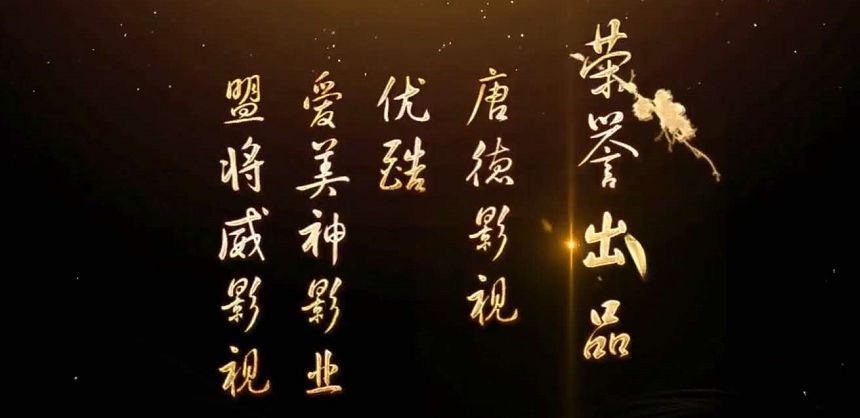 荣誉出品
唐德影视
优酷
爱美神影业
盟将威影视